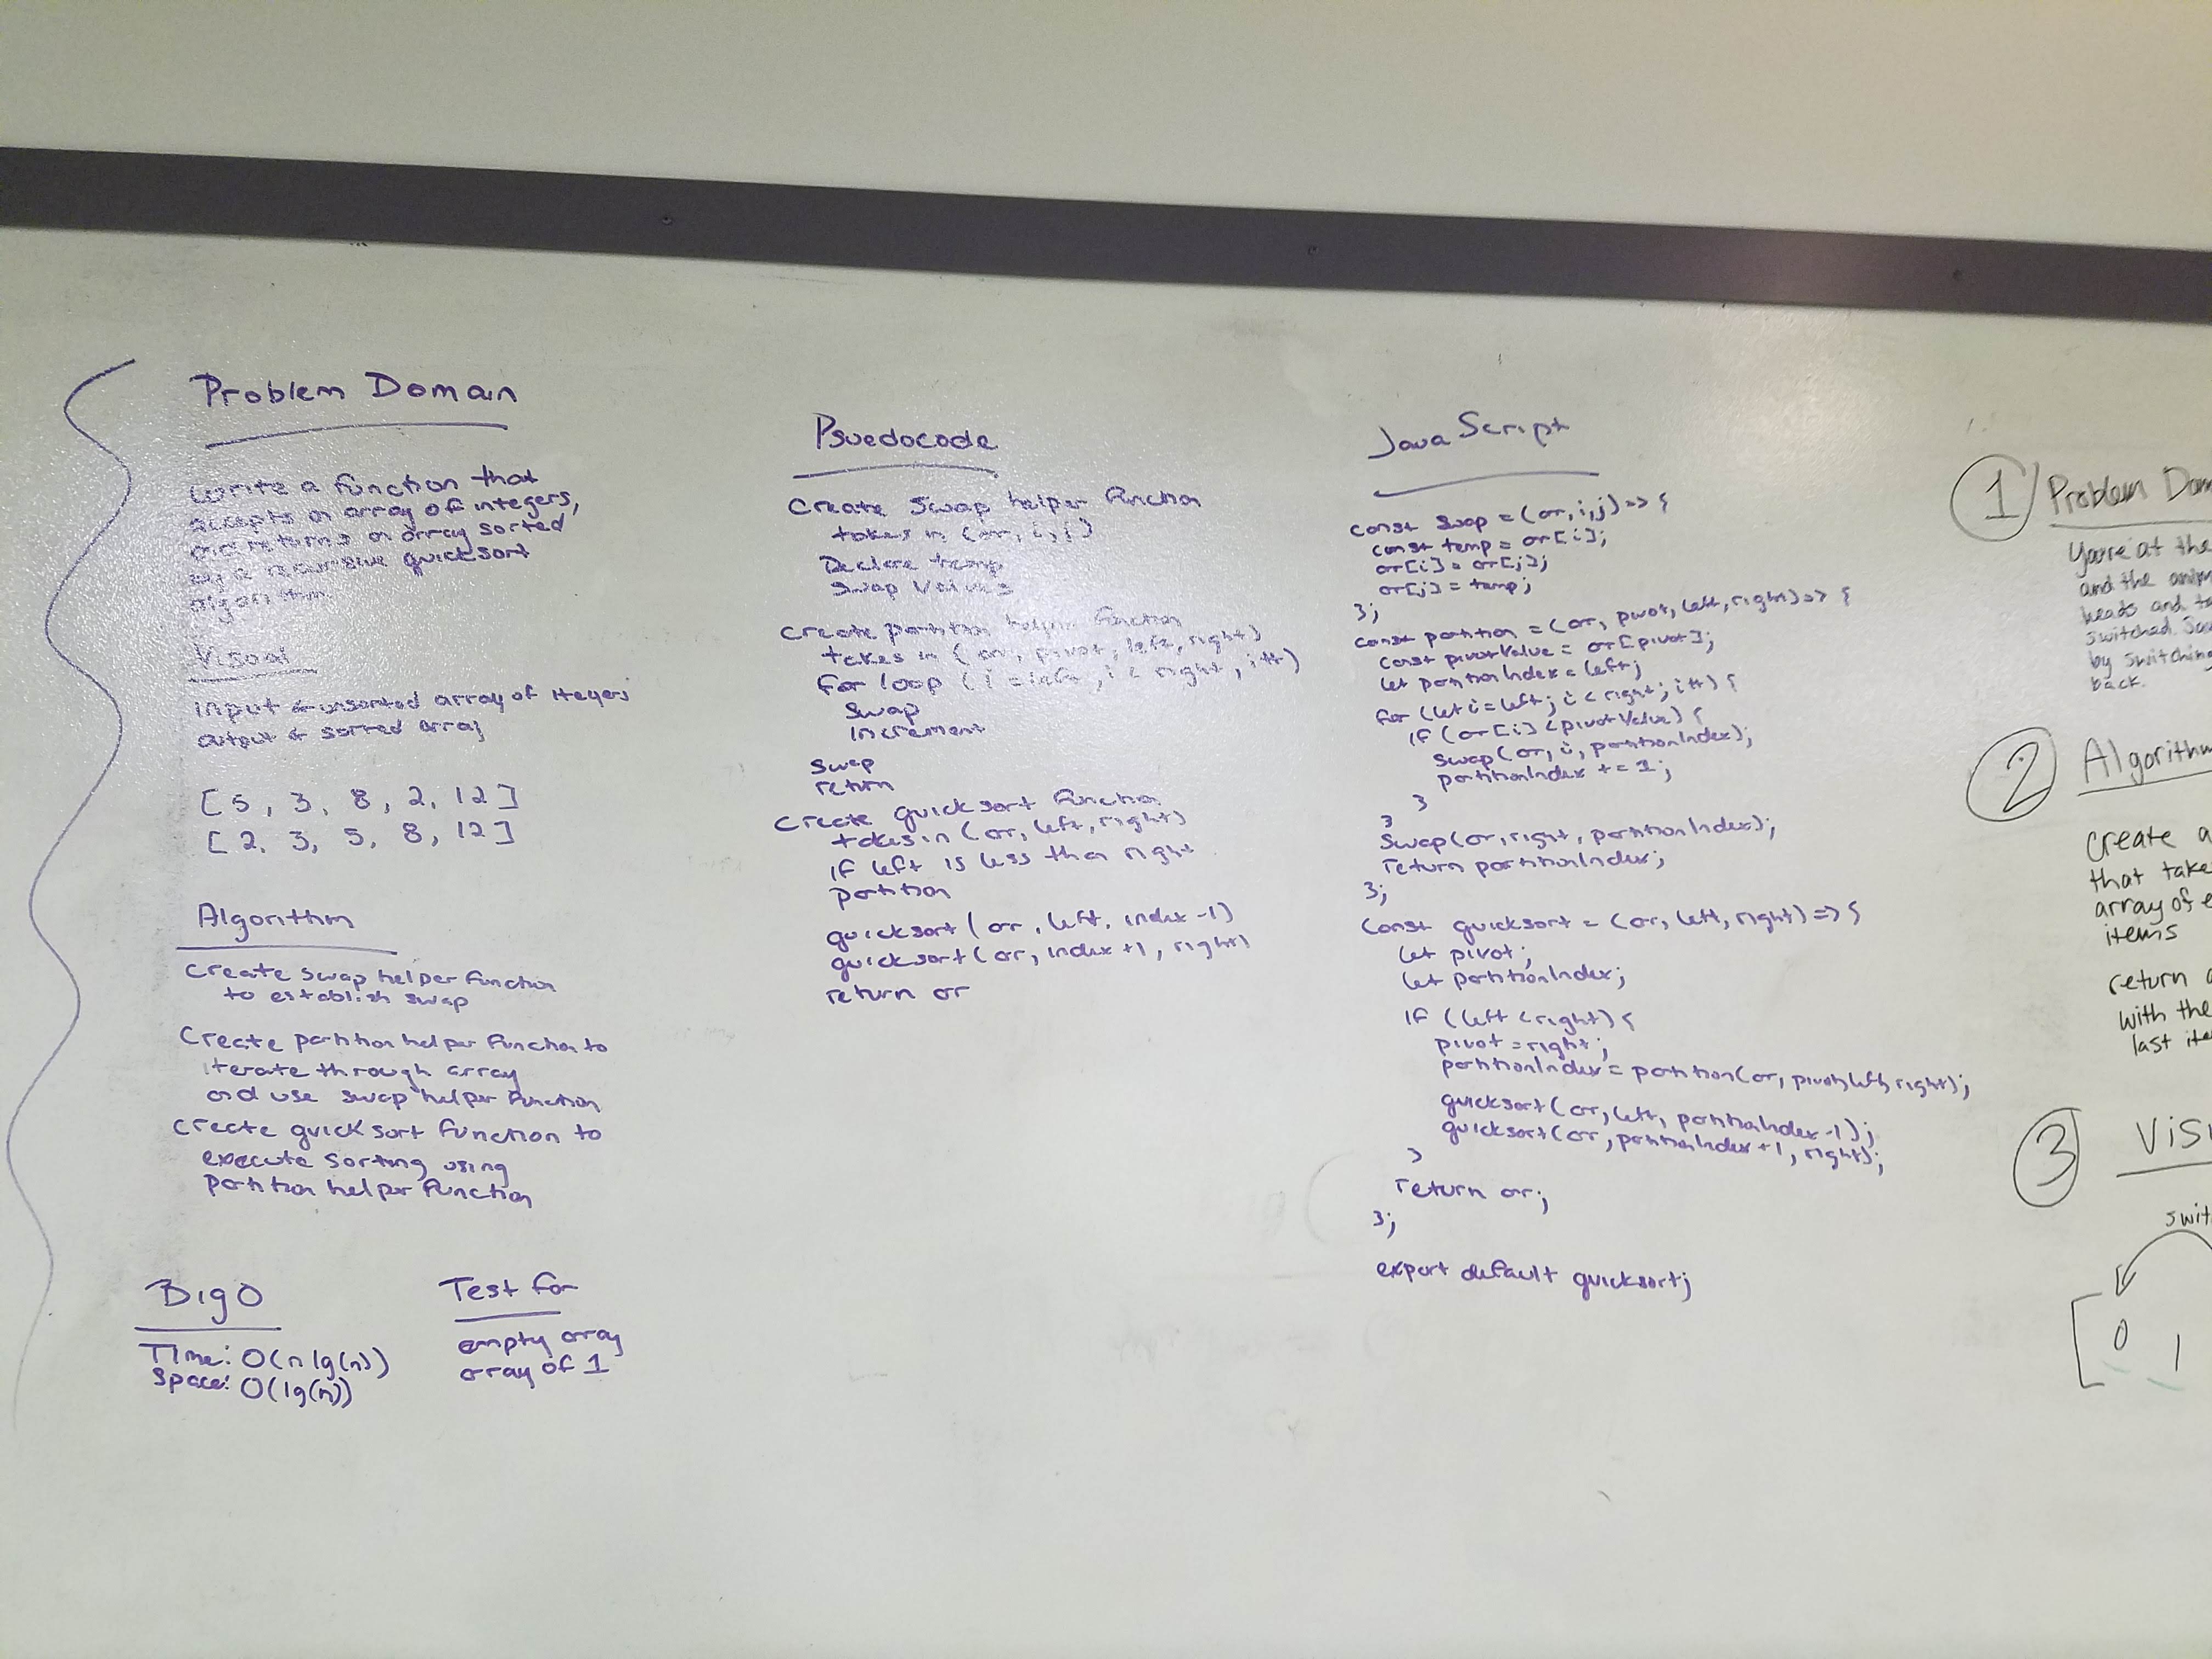 Problem Domain
Write a function that
accepts an array of integers,
and returns an array sorted
by a recursive quicksort
algorithm
Visual
Input ← unsorted array of itegers
output ← sorted array
[5, 3, 8, 2, 12]
[2, 3, 5, 8, 12]
Algorithm
Create swap helper function
to establish swap
Create partition helper function to
iterate through array
and use swap helper function
create quicksort function to
execute sorting using
partition helper function
Big O
Time: O(n lg(n))
Space: O(lg(n))
Test for
empty array
array of 1
Psuedocode
Create Swap helper function
takes in (arr, i, j)
Declare temp
Swap Values
Create partition helper function
takes in (arr, pivot, left, right)
for loop (i = left, i < right, i++)
Swap
Increment
Swap
return
Create quicksort function
takes in (arr, left, right)
if left is less than right
partition
quicksort(arr, left, index -1)
quicksort(arr, index +1, right)
return arr
JavaScript
const swap = (arr, i, j) => {
const temp = arr[i];
arr[i] = arr[j];
arr[j] = temp;
};
const partition = (arr, pivot, left, right) => {
const pivotValue = arr[pivot];
let partitionIndex = left;
for (let i = left; i < right; i++) {
if (arr[i] < pivotValue) {
swap(arr, i, partitionIndex);
partitionIndex += 1;
}
}
swap(arr, right, partitionIndex);
return partitionIndex;
};
const quicksort = (arr, left, right) => {
let pivot;
let partitionIndex;
if (left < right) {
pivot = right;
partitionIndex = partition(arr, pivot, left, right);
quicksort(arr, left, partitionIndex -1);
quicksort(arr, partitionIndex +1, right);
}
return arr;
};
export default quicksort;
1 Problem Dom
You're at the
and the anim
heads and ta
switched.
by switching
back.
2 Algorithm
Create a
that take
array of e
items
return a
with the
last ite
3 Vis
swit
[0 1